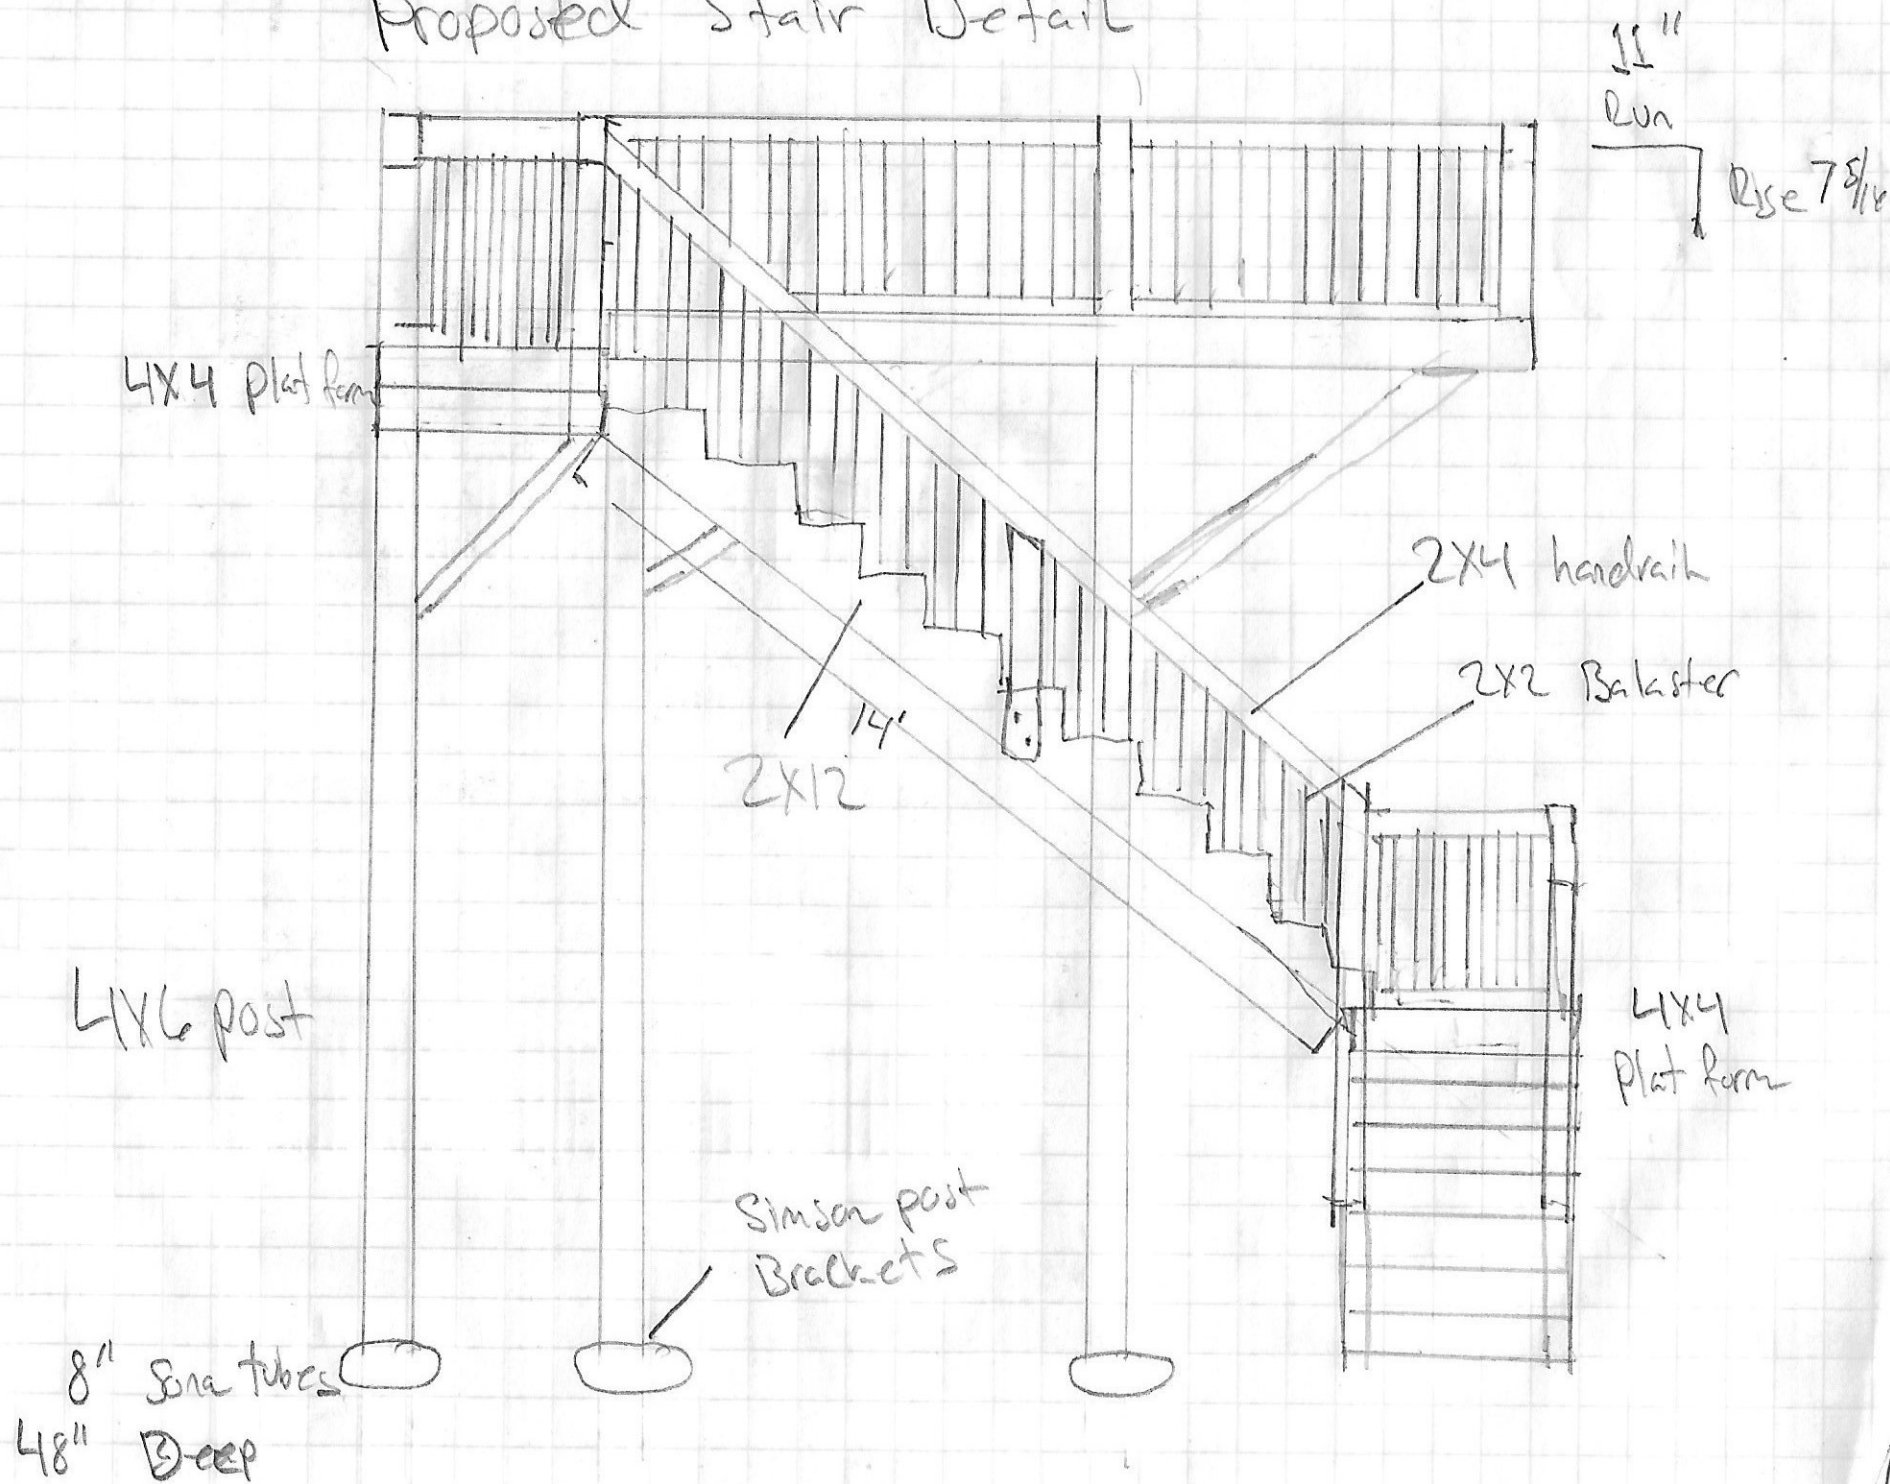 Proposed Stair Detail
11"
Run
Rise 7 5/16
4X4 platform
2X4 handrail
2X2 Balaster
14'
2X12
4X6 post
4X4
platform
Simson post
Brackets
8" Sona tubes
48" Deep